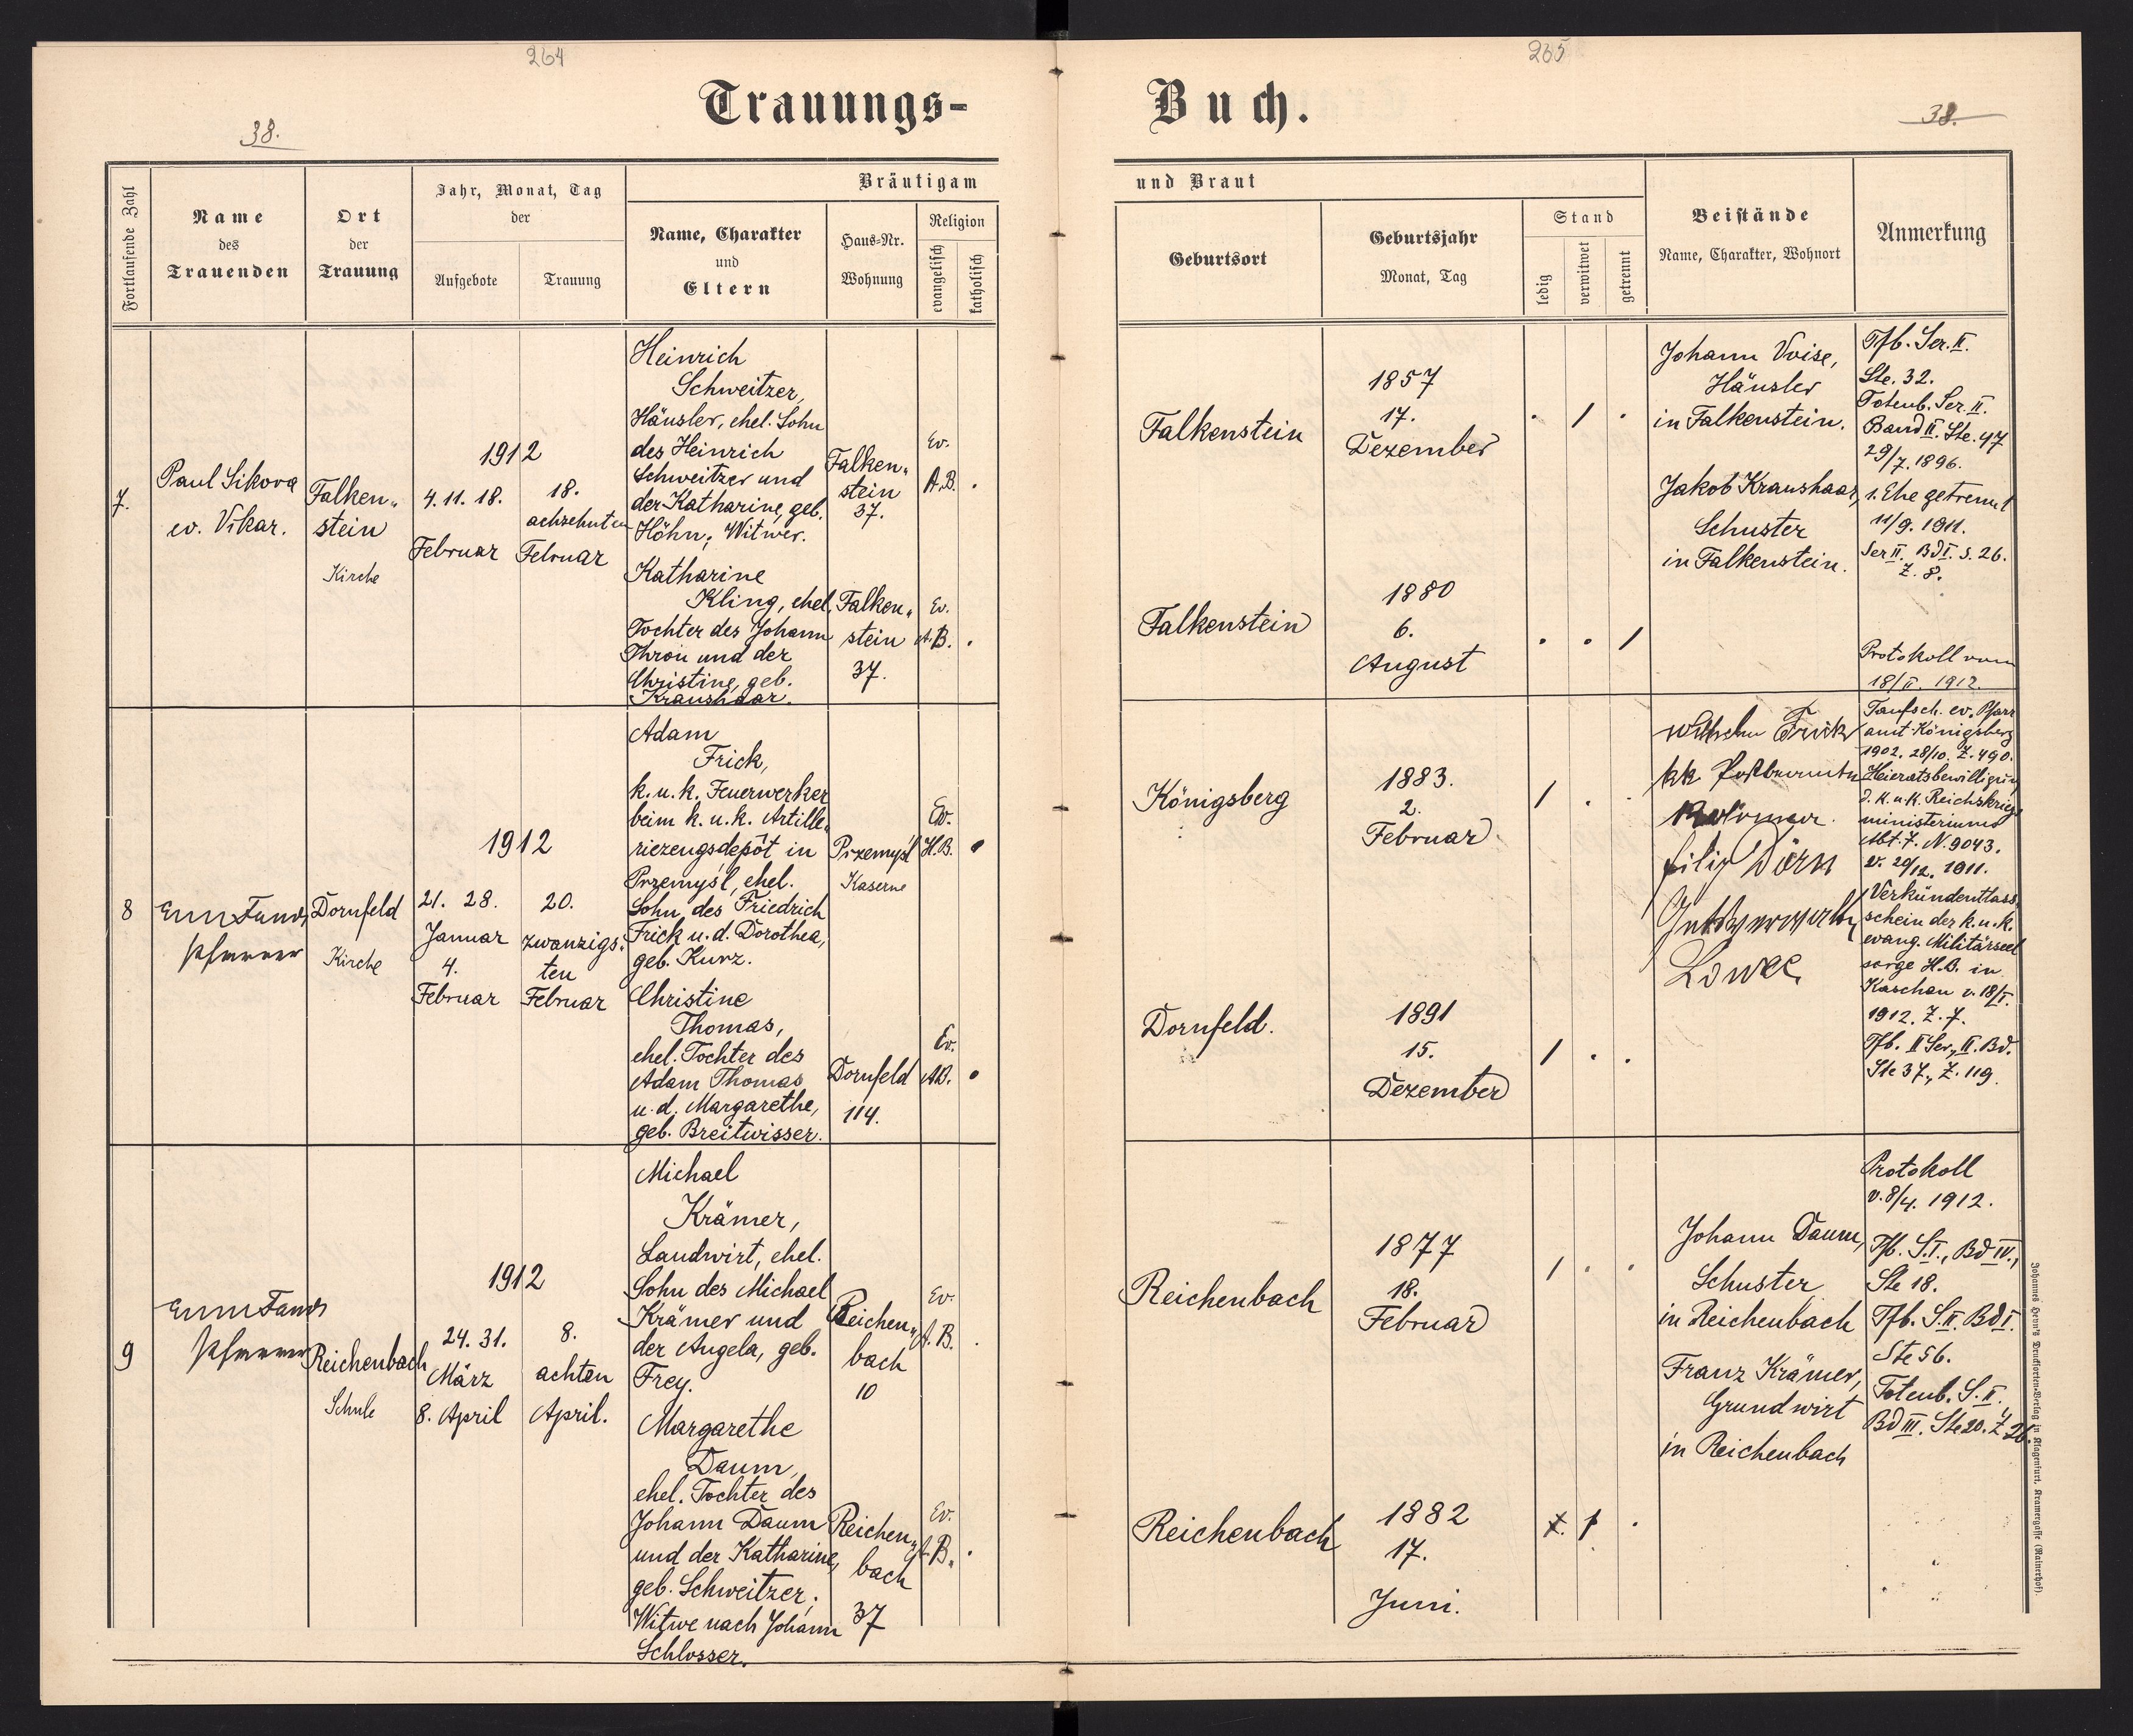 264
265
38.
38.
Trauungs-
Buch.
Fortlaufende Zahl
Name
des
Trauenden
Ort
der
Trauung
Jahr, Monat, Tag
der
Aufgebote
Trauung
Bräutigam
Name, Charakter
und
Eltern
Haus-Nr.
Wohnung
Religion
evangelisch
katholisch
und Braut
Geburtsort
Geburtsjahr
Monat, Tag
Stand
ledig
verwitwet
getrennt
Beistände
Name, Charakter, Wohnort
Anmerkung
7.
Paul Sikora
ev. Vikar.
Falken„
stein
Kirche
1912
4. 11. 18.
Februar
18.
achzehnten
Februar
Heinrich
Schweitzer,
Häusler, ehel. Sohn
des Heinrich
Schweitzer und
der Katharine, geb.
Höhn; Witwer.
Falken„
stein
37.
Ev.
A.B.
Katharine
Kling, ehel.
Tochter des Johann
Thron und der
Christine, geb.
Kraushaar.
Falken„
stein
37.
Ev.
A.B.
Falkenstein
1857
17.
Dezember
Falkenstein
1880
6.
August
Johann Voise,
Häusler
in Falkenstein.
Jakob Kraushaar,
Schuster
in Falkenstein.
Tfb. Ser. II.
Ste. 32.
Totenb. Ser. II.
Band II. Ste. 47
29/7. 1896.
1. Ehe getrennt
11/9. 1911.
Ser II. Bd I. S. 26.
Z. 8.
Protokoll vom
18/II. 1912.
8
Pfarrer
Dornfeld
Kirche
1912
21. 28.
Januar
4.
Februar
20.
zwanzigs„
ten
Februar
Adam
Frick,
k. u. k. Feuerwerker
beim k. u. k. Artille„
riezeugsdepôt in
Przemyśl, ehel.
Sohn des Friedrich
Frick u. d. Dorothea,
geb. Kurz.
Przemyśl
Kaserne
Ev.
H.B.
Christine
Thomas,
ehel. Tochter des
Adam Thomas
u. d. Margarethe,
geb. Breitwisser.
Dornfeld
114.
Ev.
A.B.
Königsberg
1883.
2.
Februar
Dornfeld.
1891
15.
Dezember
Wilhelm Frick
kk Postbeamter
Filip Dörn
Taufsch. ev. Pfarr
amt Königsberg
1902. 28/10. Z. 490.
Heiratsbewilligung
d. k. u. k. Reichskriegs
ministeriums
Abt. 7. N. 9043.
v. 29/12. 1911.
Verkündentlass
schein der k. u. k.
evang. Militärseel
sorge H.B. in
Kaschau v. 18/II.
1912. Z. 7.
Tfb. II Ser., II. Bd.
Ste 37., Z. 119.
9
Pfarrer
Reichenbach
Schule
1912
24. 31.
März
8. April
8.
achten
April.
Michael
Krämer,
Landwirt, ehel.
Sohn des Michael
Krämer und
der Angela, geb.
Frey.
Reichen„
bach
10
Ev.
A.B.
Margarethe
Daum,
ehel. Tochter des
Johann Daum
und der Katharine,
geb. Schweitzer;
Witwe nach Johann
Schlosser.
Reichen„
bach
37
Ev.
A.B.
Reichenbach
1877
18.
Februar
Reichenbach
1882
17.
Juni.
Johann Daum,
Schuster
in Reichenbach
Franz Krämer,
Grundwirt
in Reichenbach
Protokoll
v. 8/4. 1912.
Tfb. S. I., Bd IV.,
Ste 18.
Tfb. S. II. Bd I.
Ste 56.
Totenb. S. II.
Bd III. Ste 20. Z 26.
Johannes Heyn's Drucksorten-Verlag in Klagenfurt, Kramergasse (Rainerhof).